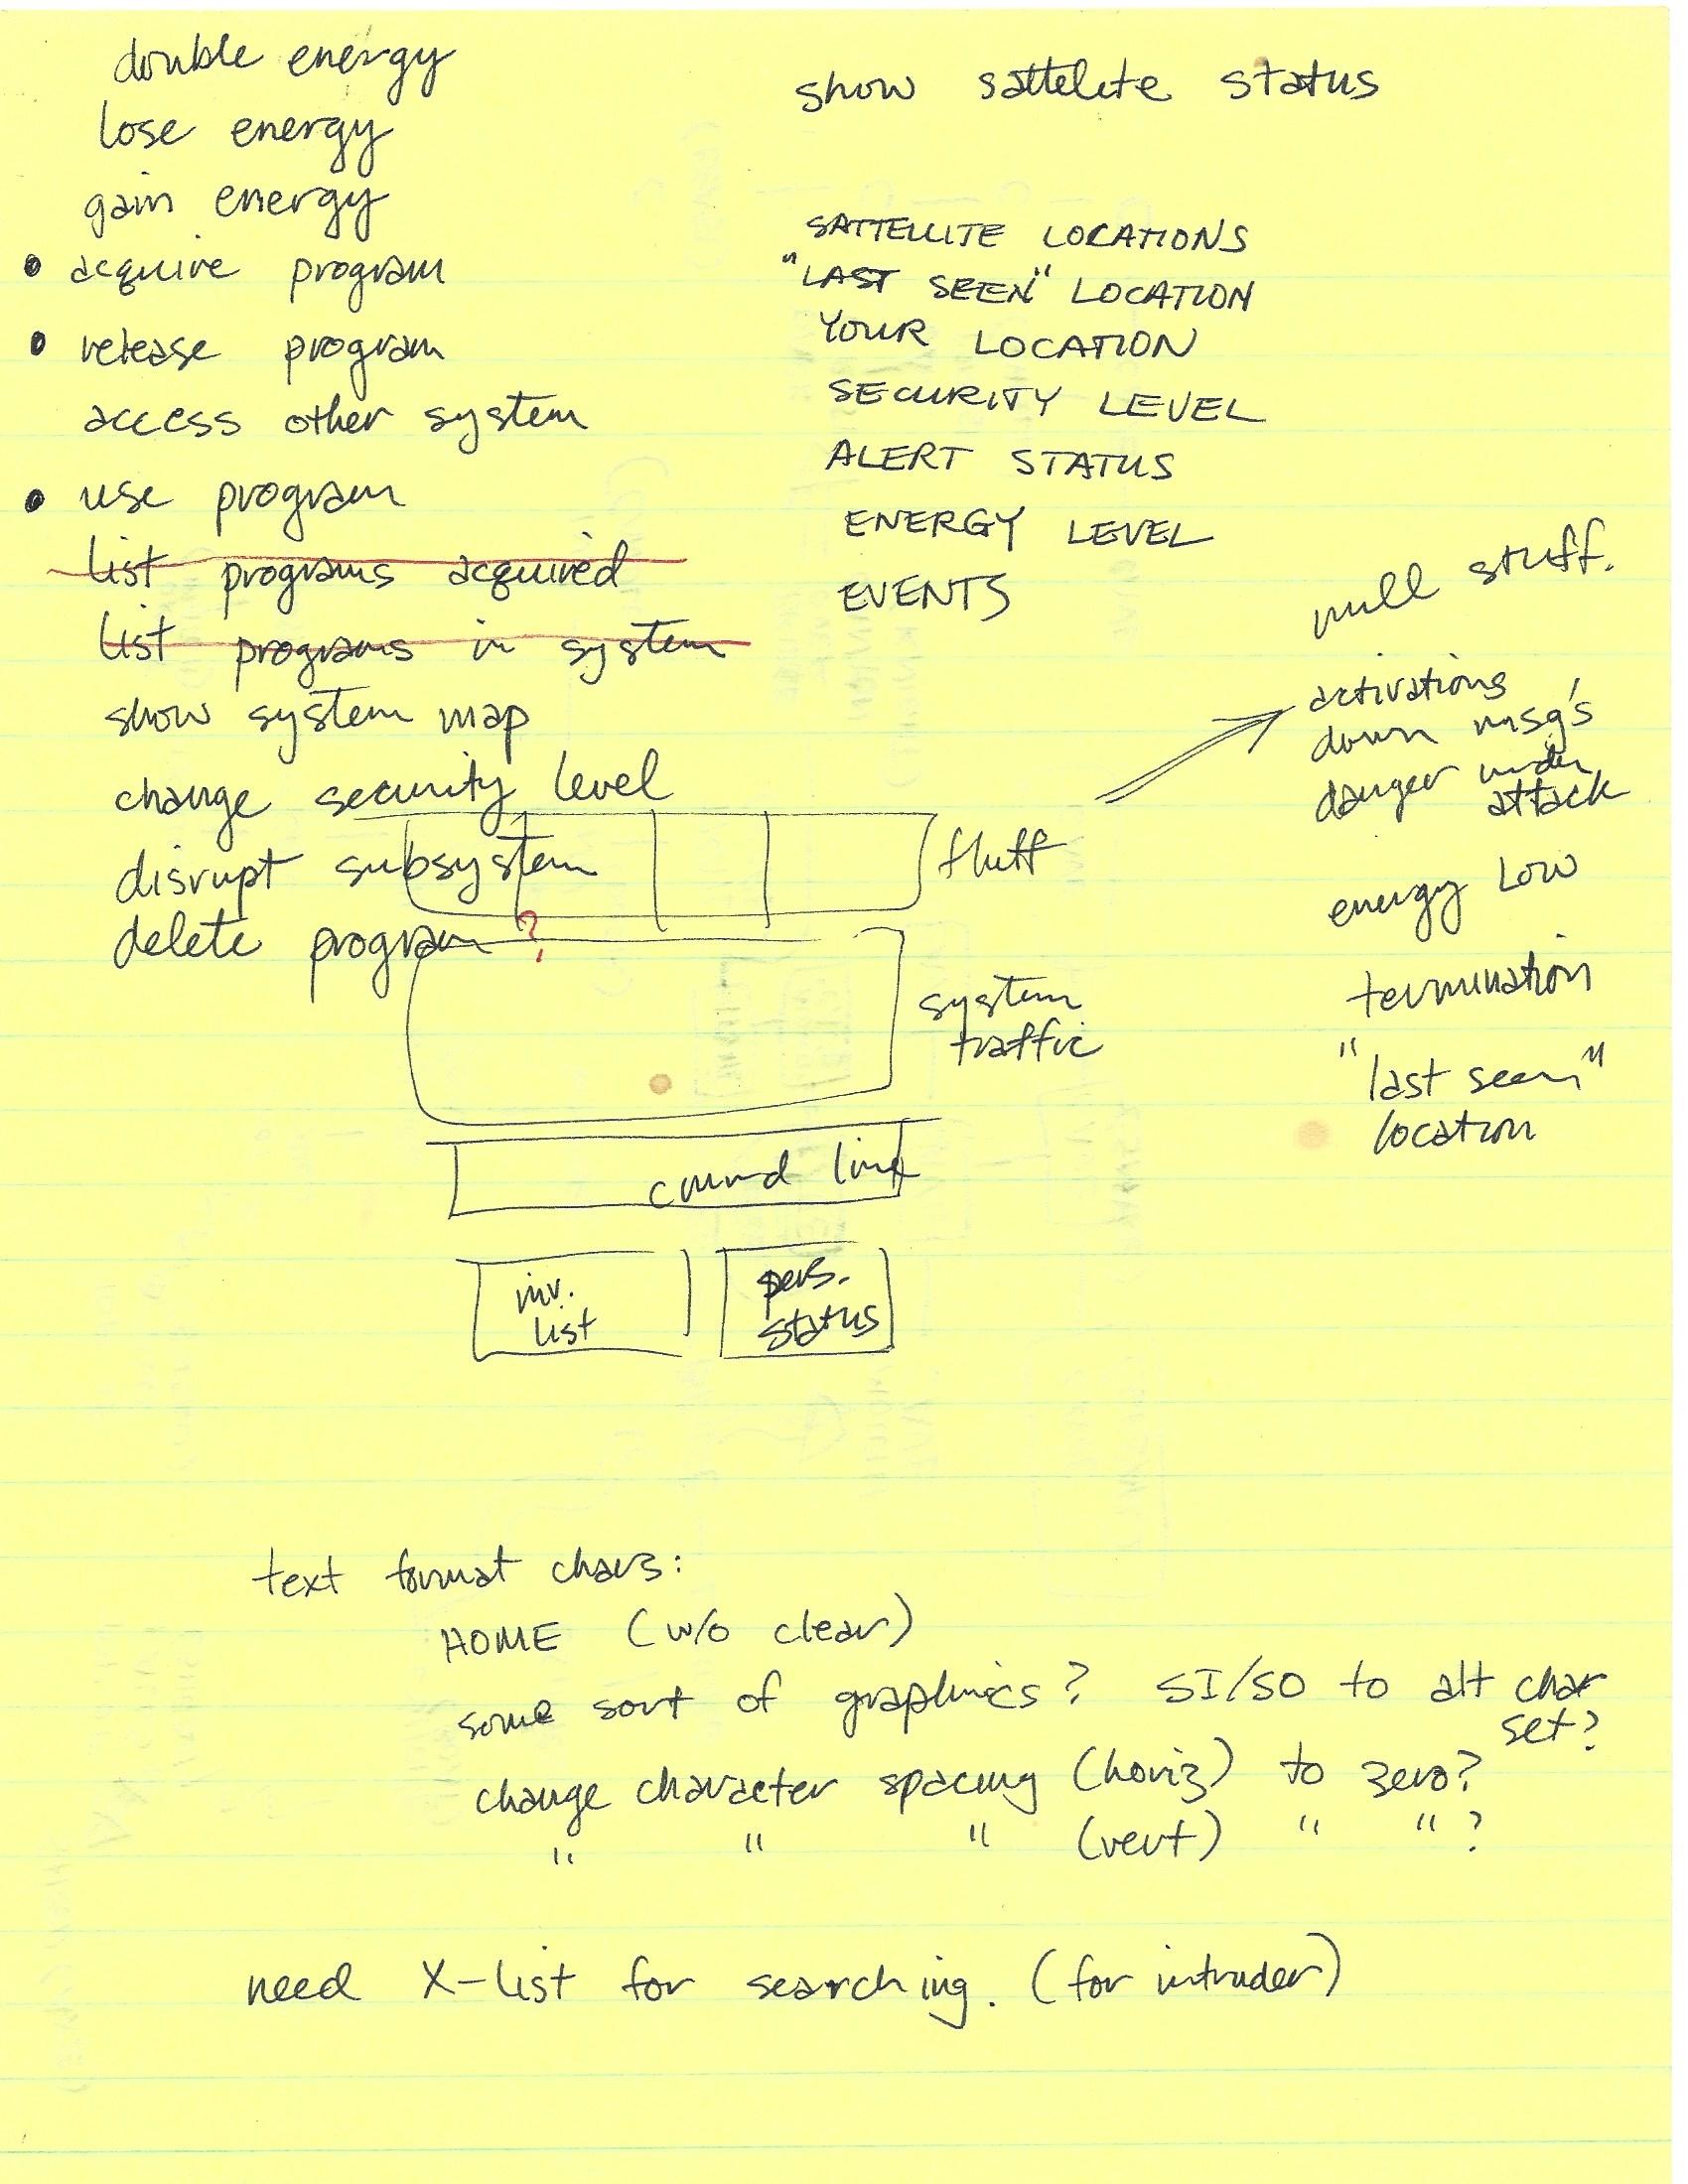 double energy
lose energy
gain energy
• acquire program
• release program
access other system
• use program
list programs acquired
list programs in system
show system map
change security level
disrupt subsystem
delete program ?
show sattelite status
SATTELLITE LOCATIONS
"LAST SEEN" LOCATION
YOUR LOCATION
SECURITY LEVEL
ALERT STATUS
ENERGY LEVEL
EVENTS
null stuff.
activations
down msg's
danger under
attack
energy low
termination
"last seen"
location
fluff
system
traffic
cmmd line
inv.
list
pers.
status
text format chars:
HOME (w/o clear)
some sort of graphnics? SI/SO to alt char
set?
change character spacing (horiz) to zero?
" " " (vert) " " ?
need X-list for searching. (for intruder)